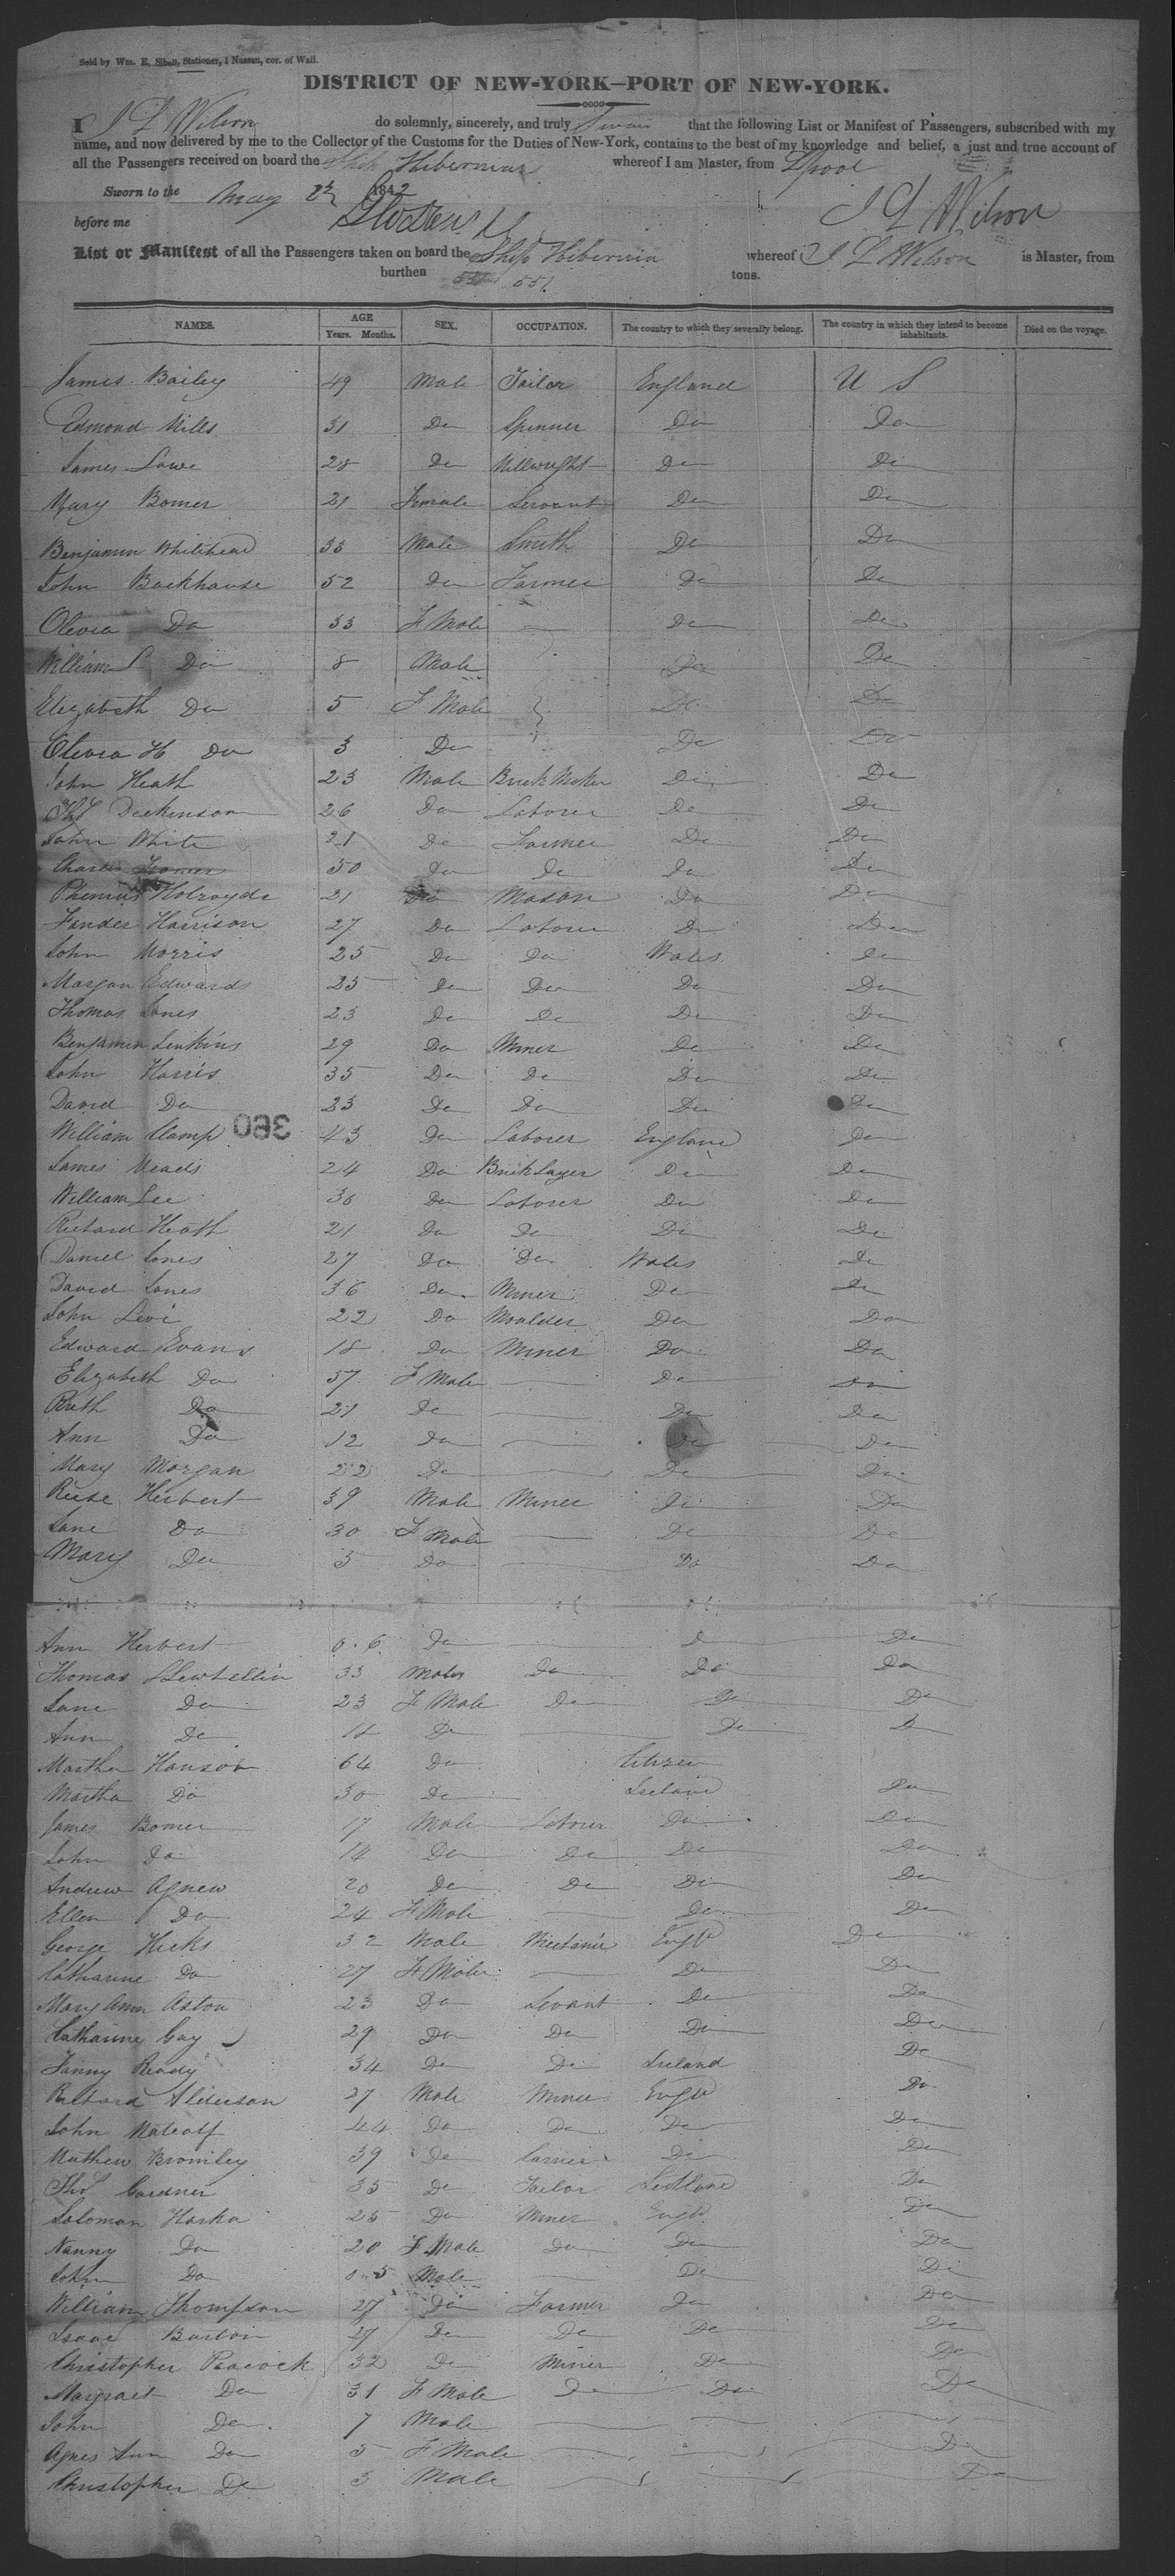 Sold by Wm. E. Sibell, Stationer, 1 Nassau, cor. of Wall.
DISTRICT OF NEW-YORK—PORT OF NEW-YORK.
I J L Wilson do solemnly, sincerely, and truly Swear that the following List or Manifest of Passengers, subscribed with my
name, and now delivered by me to the Collector of the Customs for the Duties of New-York, contains to the best of my knowledge and belief, a just and true account of
all the Passengers received on board the Ship Hibernia whereof I am Master, from Lpool
Sworn to the May 23 1842
before me J L Wilson
List or Manifest of all the Passengers taken on board the Ship Hibernia whereof J L Wilson is Master, from
burthen 551 tons.
NAMES. AGE Years. Months. SEX. OCCUPATION. The country to which they severally belong. The country in which they intend to become inhabitants. Died on the voyage.
James Bailey 49 Male Tailor England U S
Edmond Mills 31 Do Spinner Do Do
James Lowe 28 Do Millwright Do Do
Mary Bomer 21 Female Servant Do Do
Benjamin Whitehead 33 Male Smith Do Do
John Backhouse 52 Do Farmer Do Do
Olivia Do 33 F Male — Do Do
William L Do 8 Male Do Do
Elizabeth Do 5 F Male Do Do
Olivia H Do 3 Do Do Do
John Heath 23 Male Brick Maker Do Do
Thos Dickinson 26 Do Laborer Do Do
John White 21 Do Farmer Do Do
Charles 50 Do Do Do Do
Phenius Holroyde 21 Do Mason Do Do
Fender Harrison 27 Do Laborer Do Do
John Morris 25 Do Do Wales Do
Morgan Edwards 25 Do Do Do Do
Thomas Jones 23 Do Do Do Do
Benjamin Jenkins 29 Do Miner Do Do
John Harris 35 Do Do Do Do
David Do 23 Do Do Do Do
William Clamp 43 Do Laborer England Do
360
James Meads 24 Do Brick Layer Do Do
William Lee 36 Do Laborer Do Do
Richard Heath 21 Do Do Do Do
Daniel Jones 27 Do Do Wales Do
David Jones 36 Do Miner Do Do
John Levi 22 Do Moulder Do Do
Edward Evans 18 Do Miner Do Do
Elizabeth Do 57 F Male — Do Do
Ruth Do 21 Do — Do Do
Ann Do 12 Do — Do Do
Mary Morgan 22 Do — Do Do
Reese Herbert 39 Male Miner Do Do
Jane Do 30 F Male — Do Do
Mary Do 5 Do — Do Do
Ann Herbert 0.6 Do Do Do
Thomas Llewhellin 33 Male Do Do Do
Jane Do 23 F Male Do Do Do
Ann Do Do — Do Do
Martha Hanson 64 Do Citizen
Martha Do 30 Do Ireland Do
James Bomer 17 Male Laborer Do Do
John Do 14 Do Do Do Do
Andrew Agnew 20 Do Do Do Do
Ellen Do 24 F Male — Do Do
George Hicks 32 Male Mechanic Engd Do
Catharine Do 27 F Male — Do Do
Mary Ann Aston 23 Do Sevant Do Do
Catharine Gay 29 Do Do Do Do
Fanny Ready 34 Do Do Ireland Do
Richard Alderson 27 Male Miner Engd Do
John Metcalf 44 Do Do Do Do
Mathew Bromley 39 Do Do Do
Thos Gardner 35 Do Tailor Scotland Do
Soloman Harka 25 Do Miner Engd Do
Nanny Do 20 F Male Do Do Do
John Do 0.5 Male — Do Do
William Thompson 27 Do Farmer Do Do
Isaac Burton 27 Do Do Do Do
Christopher Peacock 32 Do Miner Do Do
Margaret Do 31 F Male Do Do Do
John Do 7 Male — —
Agnes Ann Do 5 F Male — Do
Christopher Do 3 Male — Do